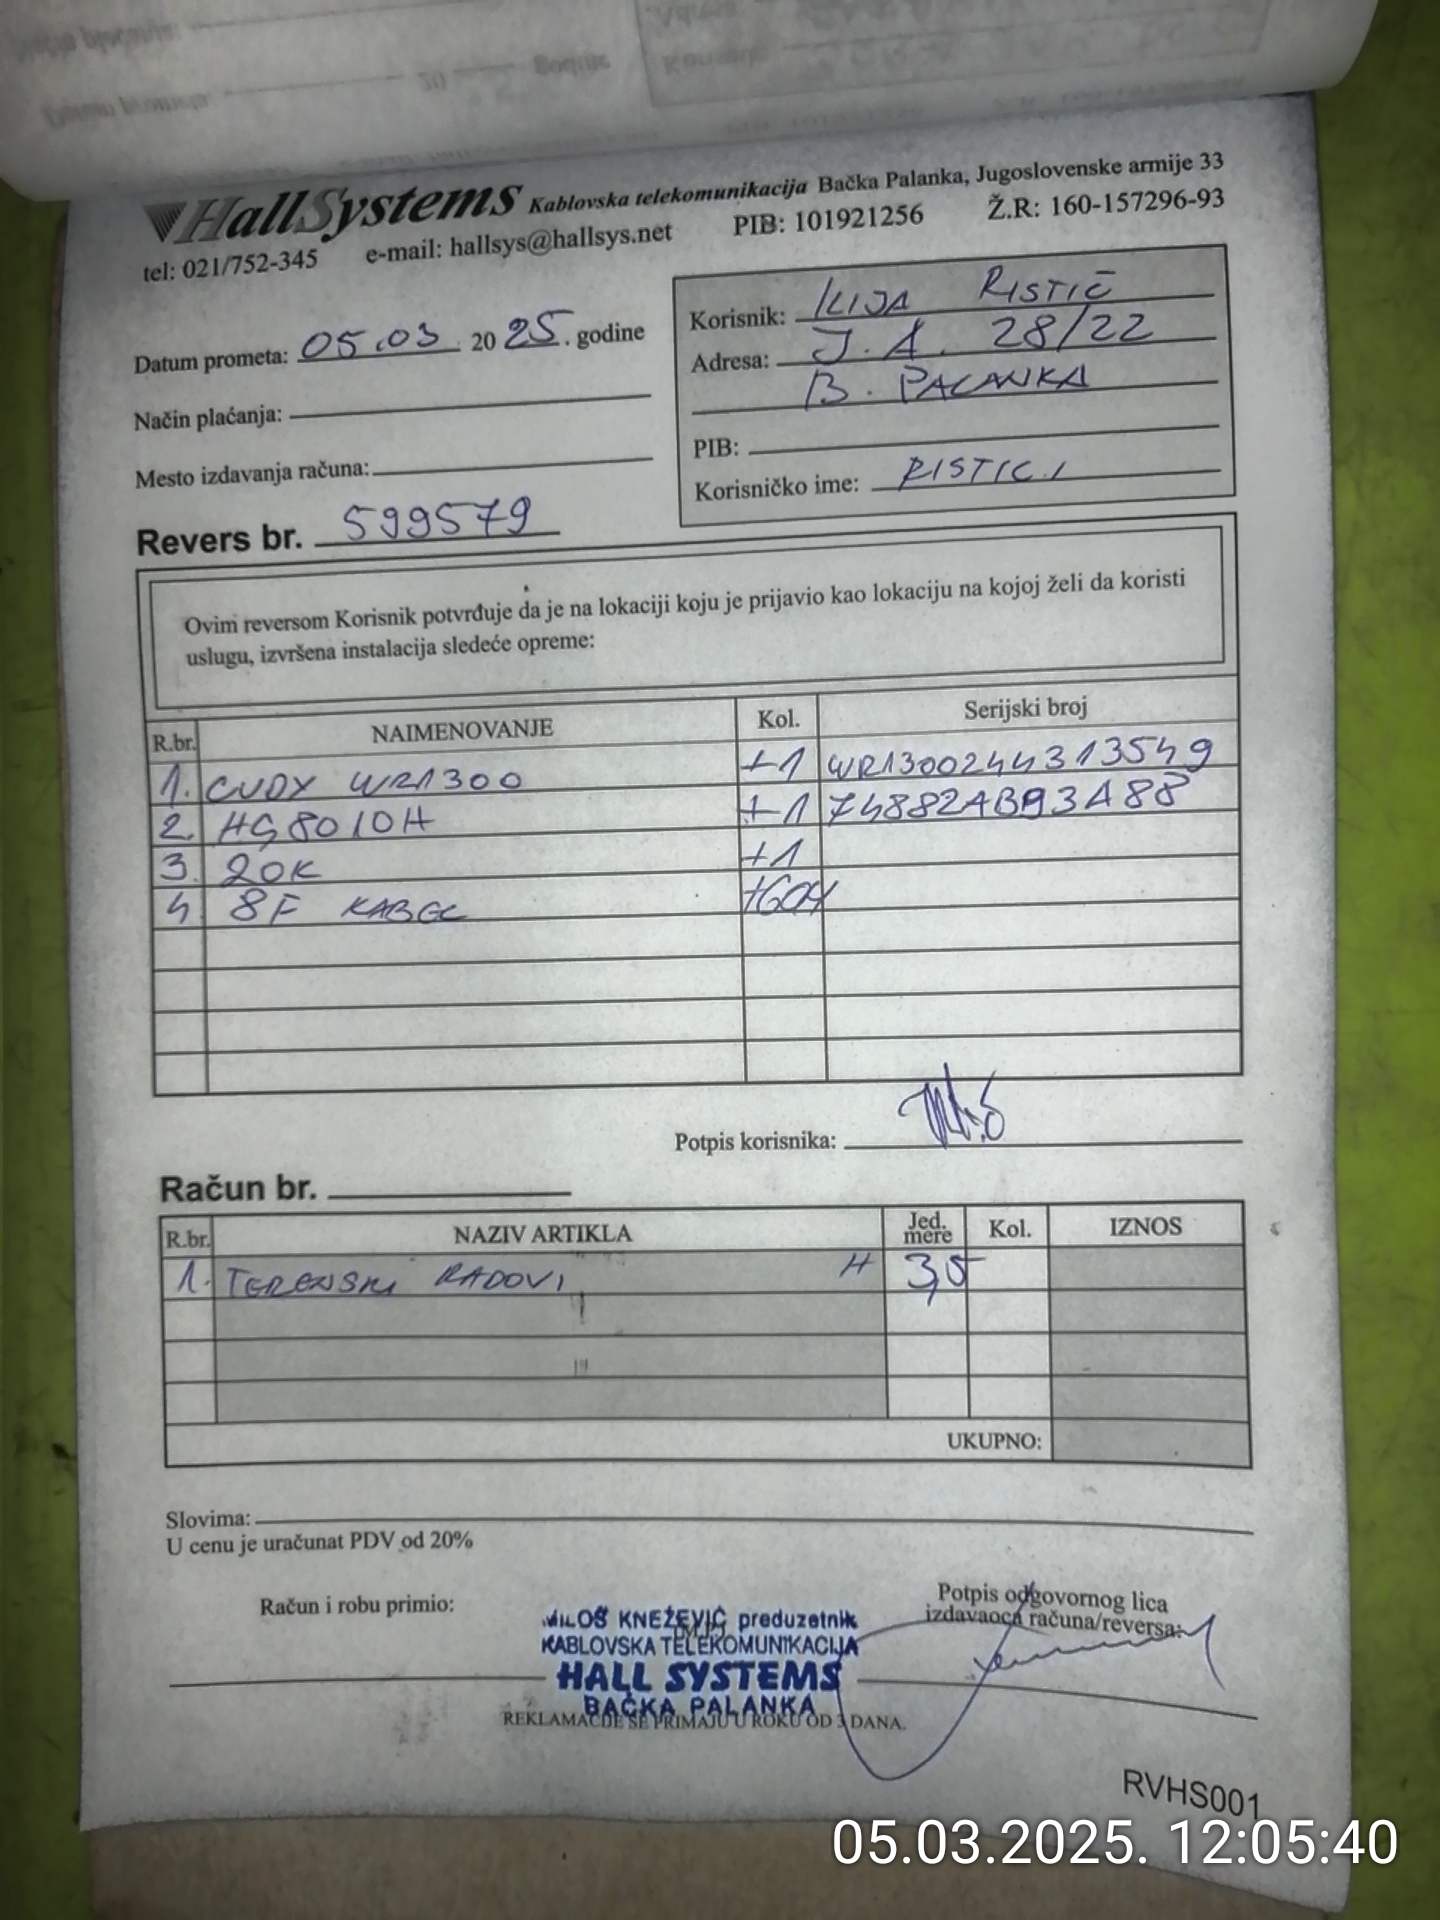 HallSystems Kablovska telekomunikacija Bačka Palanka, Jugoslovenske armije 33
tel: 021/752-345 e-mail: hallsys@hallsys.net PIB: 101921256 Ž.R: 160-157296-93
Datum prometa: 05.03 2025. godine
Način plaćanja:
Mesto izdavanja računa:
Korisnik: ILIJA RISTIĆ
Adresa: J.A. 28/22
B. PALANKA
PIB:
Korisničko ime: RISTIC.I
Revers br. 599579
Ovim reversom Korisnik potvrđuje da je na lokaciji koju je prijavio kao lokaciju na kojoj želi da koristi
uslugu, izvršena instalacija sledeće opreme:
R.br. NAIMENOVANJE Kol. Serijski broj
1. CUDY WR1300 +1 WR1300244313549
2. HG8010H +1 74882AB93A88
3. ZOK +1
4. 8F KABEL
Potpis korisnika:
Račun br.
R.br. NAZIV ARTIKLA Jed. mere Kol. IZNOS
1. TERENSKI RADOVI H 3,5
UKUPNO:
Slovima:
U cenu je uračunat PDV od 20%
Račun i robu primio:
Potpis odgovornog lica
izdavaoca računa/reversa:
MILOŠ KNEŽEVIĆ preduzetnik
KABLOVSKA TELEKOMUNIKACIJA
HALL SYSTEMS
BAČKA PALANKA
REKLAMACIJE SE PRIMAJU U ROKU OD 3 DANA.
RVHS001
05.03.2025. 12:05:40